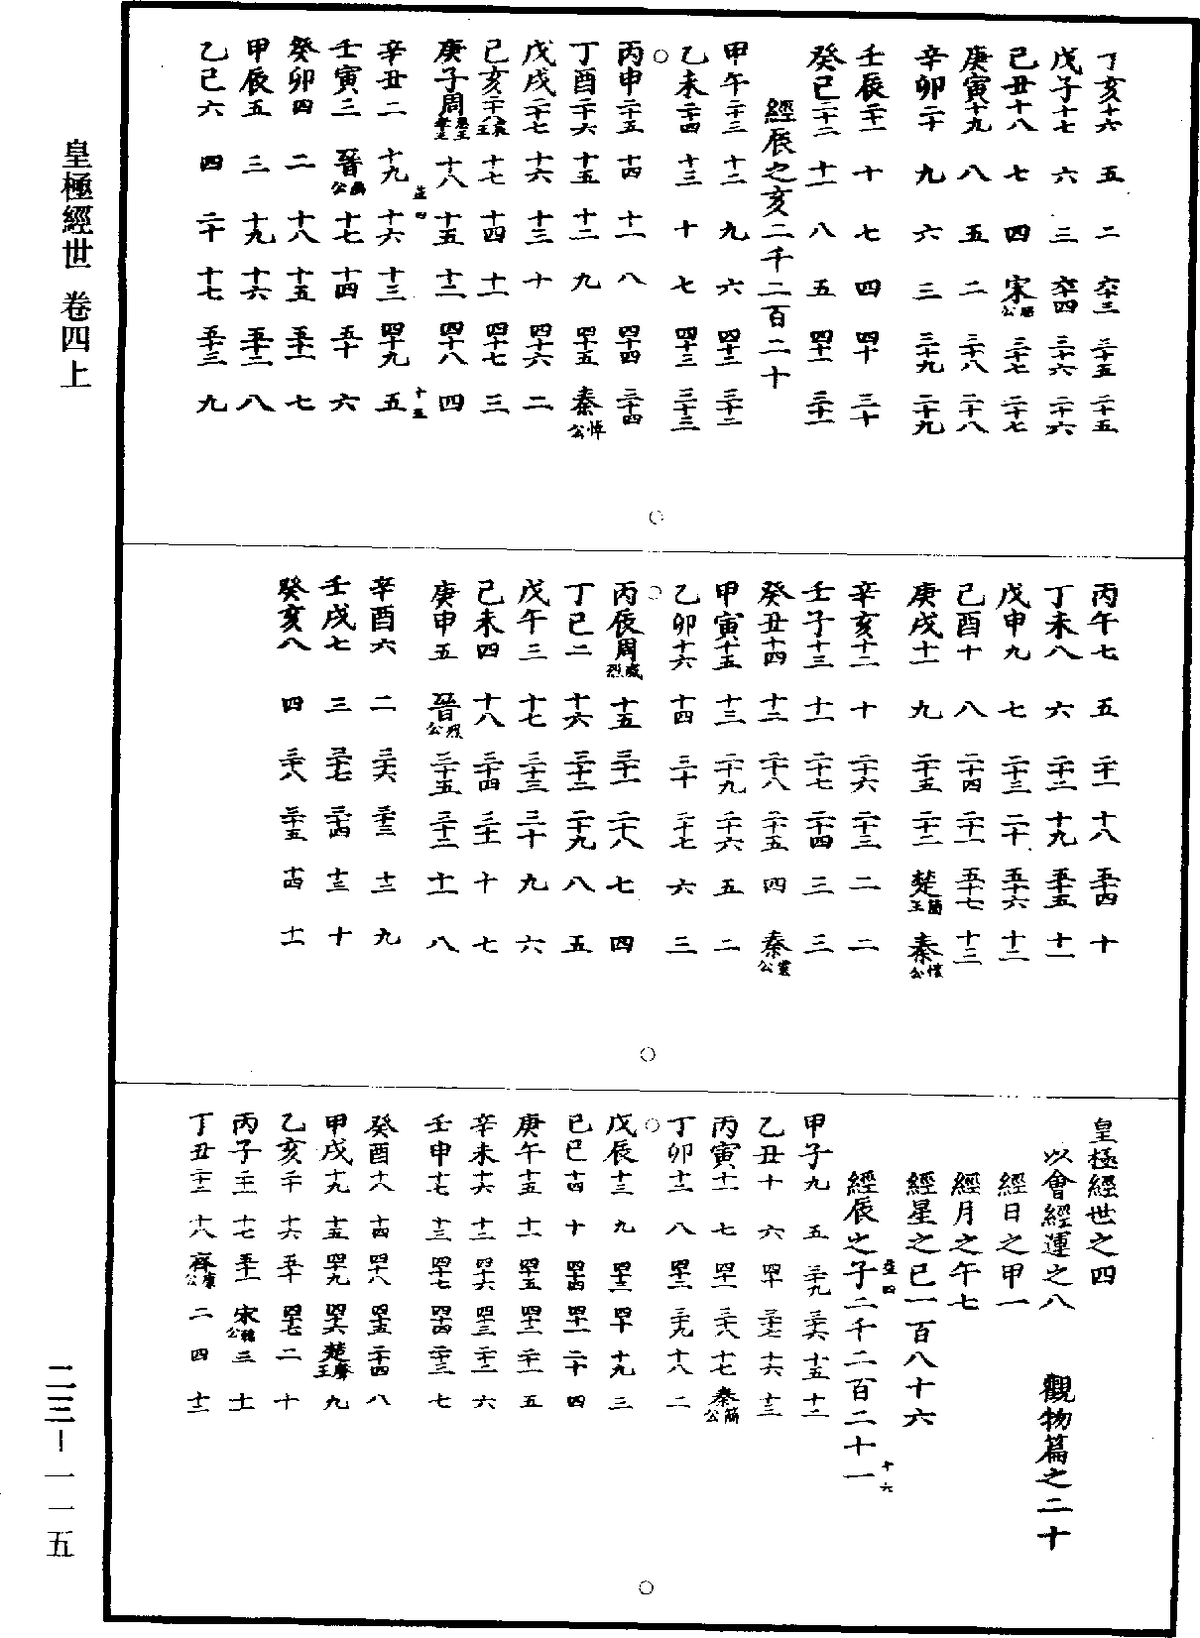 皇極經世 卷四上
丁亥十六 五 二 六十三 三十五 二十五
戊子十七 六 三 六十四 三十六 二十六
己丑十八 七 四 宋昭公 三十七 二十七
庚寅十九 八 五 二 三十八 二十八
辛卯二十 九 六 三 三十九 二十九
壬辰二十一 十 七 四 四十 三十
癸巳二十二 十一 八 五 四十一 三十一
經辰之亥二千二百二十
甲午二十三 十二 九 六 四十二 三十二
乙未二十四 十三 十 七 四十三 三十三
○
丙申二十五 十四 十一 八 四十四 三十四
丁酉二十六 十五 十二 九 四十五 秦悼公
戊戌二十七 十六 十三 十 四十六 二
己亥二十八王哀 十七 十四 十一 四十七 三
庚子周 十八 十五 十二 四十八 四
辛丑二 十九 十六 十三 四十九 五
壬寅三 晉幽公 十七 十四 五十 六
癸卯四 二 十八 十五 五十一 七
甲辰五 三 十九 十六 五十二 八
乙巳六 四 二十 十七 五十三 九
○
丙午七 五 二十一 十八 五十四 十
丁未八 六 二十二 十九 五十五 十一
戊申九 七 二十三 二十 五十六 十二
己酉十 八 二十四 二十一 五十七 十三
庚戌十一 九 二十五 二十二 楚簡王 秦懷公
辛亥十二 十 二十六 二十三 二 二
壬子十三 十一 二十七 二十四 三 三
癸丑十四 十二 二十八 二十五 四 秦靈公
甲寅十五 十三 二十九 二十六 五 二
乙卯十六 十四 三十 二十七 六 三
○
丙辰周威烈 十五 三十一 二十八 七 四
丁巳二 十六 三十二 二十九 八 五
戊午三 十七 三十三 三十 九 六
己未四 十八 三十四 三十一 十 七
庚申五 晉烈公 三十五 三十二 十一 八
辛酉六 二 三十六 三十三 十二 九
壬戌七 三 三十七 三十四 十三 十
癸亥八 四 三十八 三十五 十四 十一
○
皇極經世之四
以會經運之八 觀物篇之二十
經日之甲一
經月之午七
經星之巳一百八十六
經辰之子二千二百二十一
甲子九 五 三十九 三十六 十五 十二
乙丑十 六 四十 三十七 十六 十三
丙寅十一 七 四十一 三十八 十七 秦簡公
丁卯十二 八 四十二 三十九 十八 二
○
戊辰十三 九 四十三 四十 十九 三
己巳十四 十 四十四 四十一 二十 四
庚午十五 十一 四十五 四十二 二十一 五
辛未十六 十二 四十六 四十三 二十二 六
壬申十七 十三 四十七 四十四 二十三 七
癸酉十八 十四 四十八 四十五 二十四 八
甲戌十九 十五 四十九 四十六 楚聲王 九
乙亥二十 十六 五十 四十七 二 十
丙子二十一 十七 五十一 宋公 三 十一
丁丑二十二 十八 齊康公 二 四 十二
○
二三－一一五